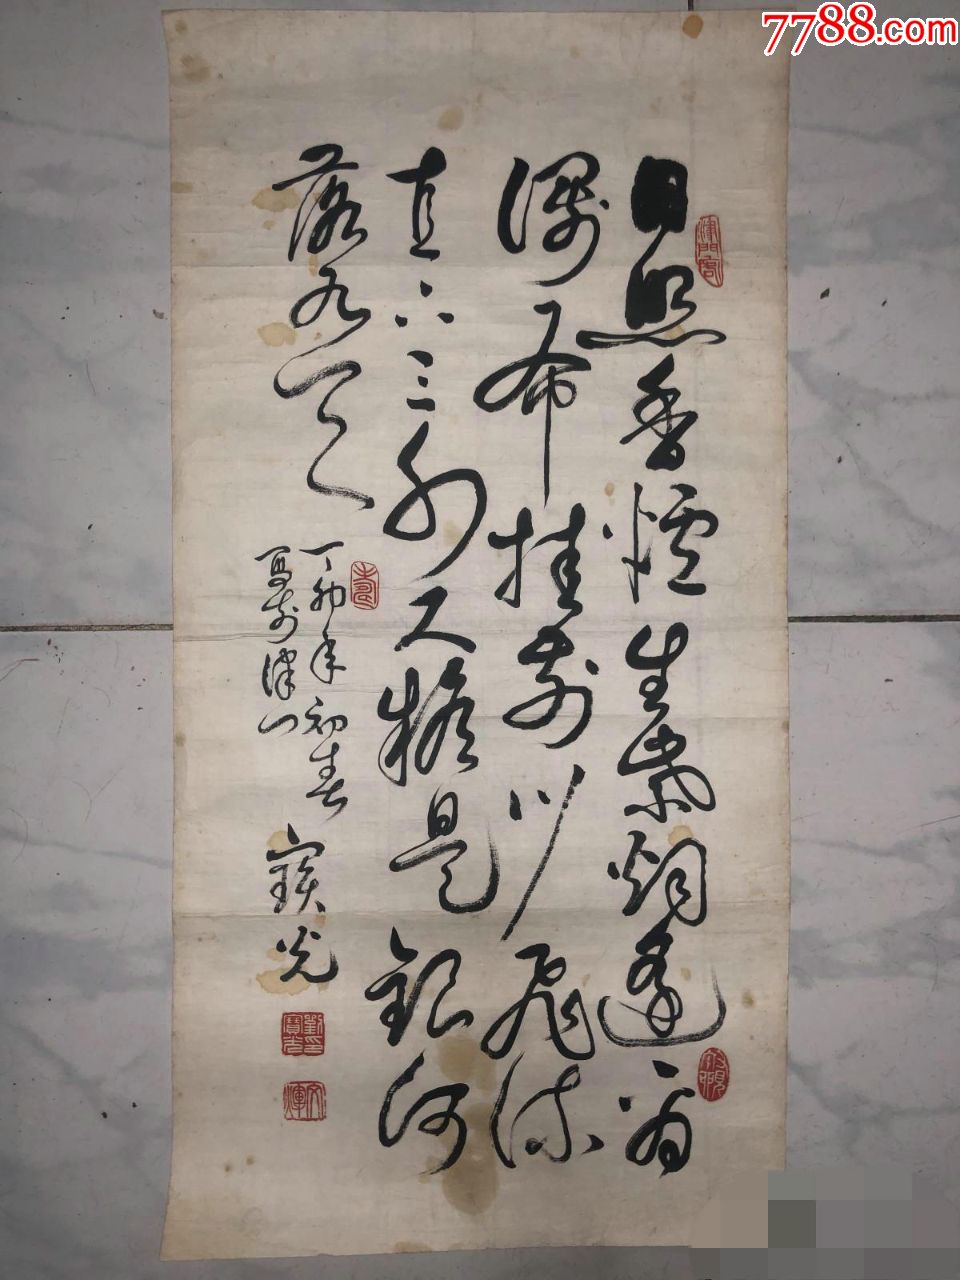 7788.com
日照香爐生紫烟遥看
瀑布挂前川飛流
直下三千尺疑是銀河
落九天
丁卯年初春
寫於津门
寶光
劉寶光印